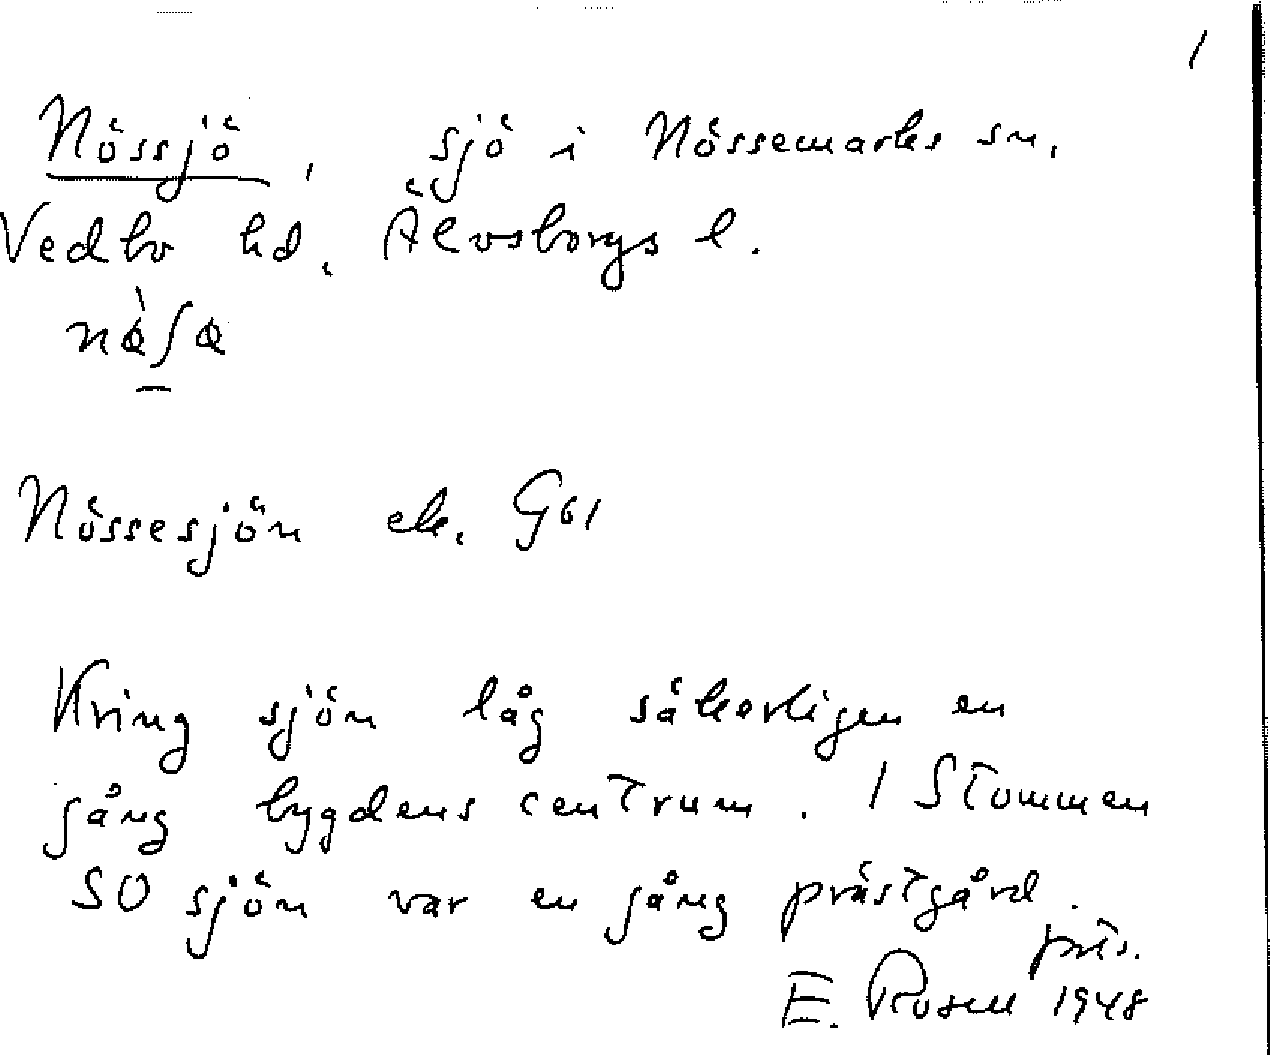 1
Nössjö, sjö i Nössemarks sn.
Vedbo hd. Älvsborgs l.
Nössesjön ek. G61
Kring sjön låg säkerligen en
gång bygdens centrum. I Stommen
SO sjön var en gång prästgård.
forts.
E. Rosell 1948